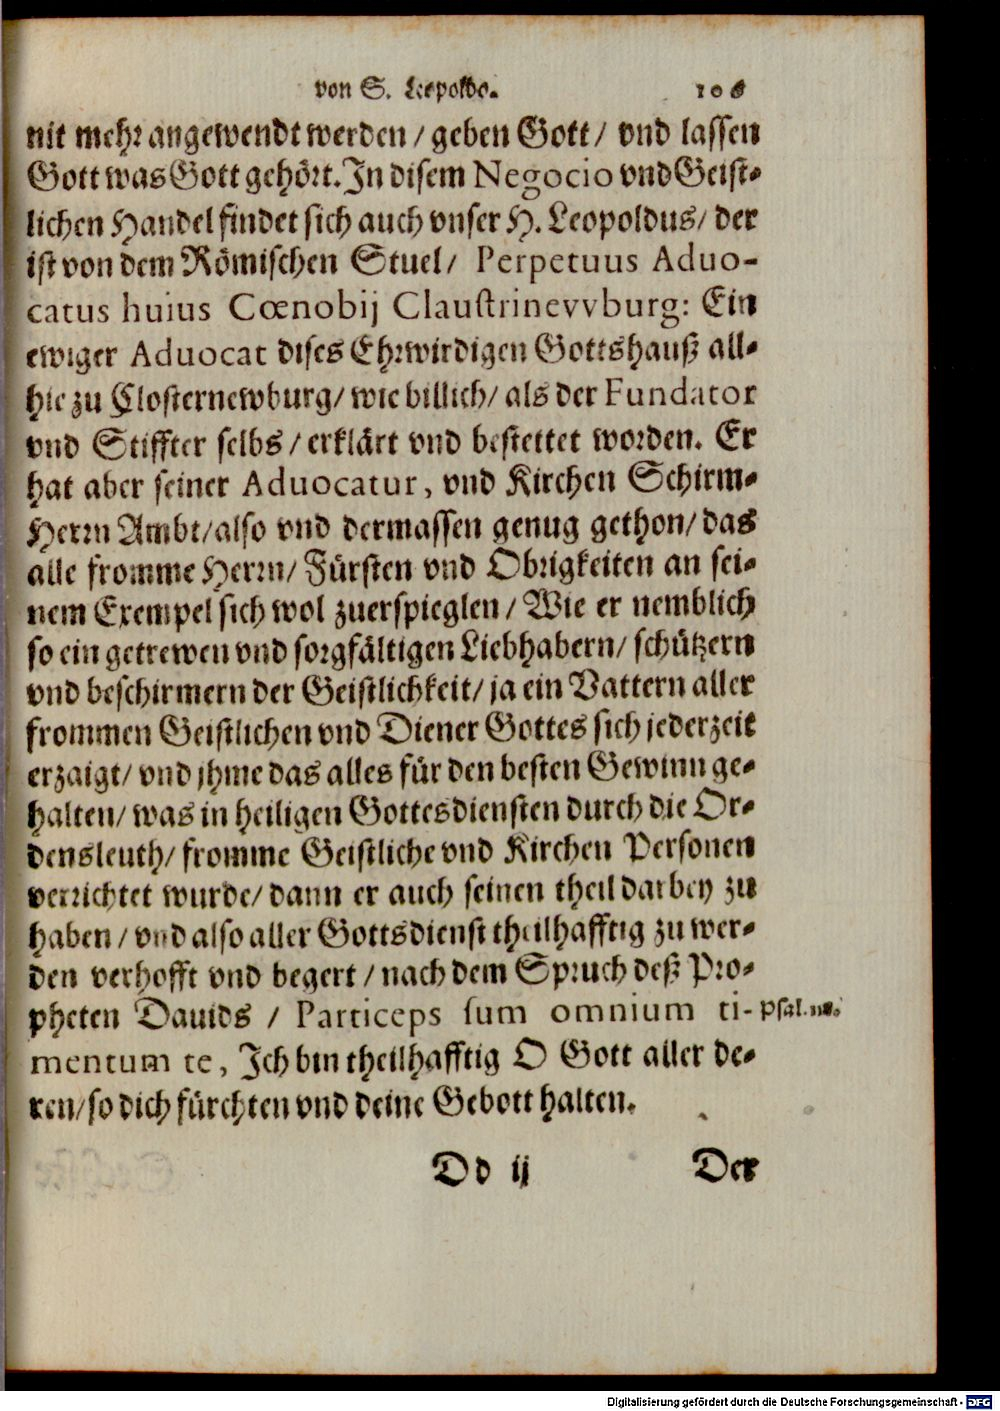 von S. Leopoldo. 106
nit mehr angewendt werden / geben Gott / vnd lassen
Gott was Gott gehört. In disem Negocio vnd Geist-
lichen Handel findet sich auch vnser H. Leopoldus / der
ist von dem Römischen Stuel / Perpetuus Aduo-
catus huius Cœnobij Claustrinevvburg: Ein
ewiger Aduocat dises Ehrwirdigen Gottshauß all-
hie zu Closternewburg / wie billich / als der Fundator
vnd Stiffter selbs / erklärt vnd bestettet worden. Er
hat aber seiner Aduocatur, vnd Kirchen Schirm-
Herrn Ambt / also vnd dermassen genug gethon / das
alle fromme Herrn / Fürsten vnd Obrigkeiten an sei-
nem Exempel sich wol zuerspieglen / Wie er nemblich
so ein getrewen vnd sorgfältigen Liebhabern / schützern
vnd beschirmern der Geistlichkeit / ja ein Vattern aller
frommen Geistlichen vnd Diener Gottes sich jederzeit
erzaigt / vnd jhme das alles für den besten Gewinn ge-
halten / was in heiligen Gottesdiensten durch die Or-
densleuth / fromme Geistliche vnd Kirchen Personen
verrichtet wurde / dann er auch seinen theil darbey zu
haben / vnd also aller Gottsdienst theilhafftig zu wer-
den verhofft vnd begert / nach dem Spruch deß Pro-
pheten Dauids / Particeps sum omnium ti- Psal.
mentum te, Ich bin theilhafftig O Gott aller de-
ren / so dich fürchten vnd deine Gebott halten.
Dd ij Der
Digitalisierung gefördert durch die Deutsche Forschungsgemeinschaft - DFG